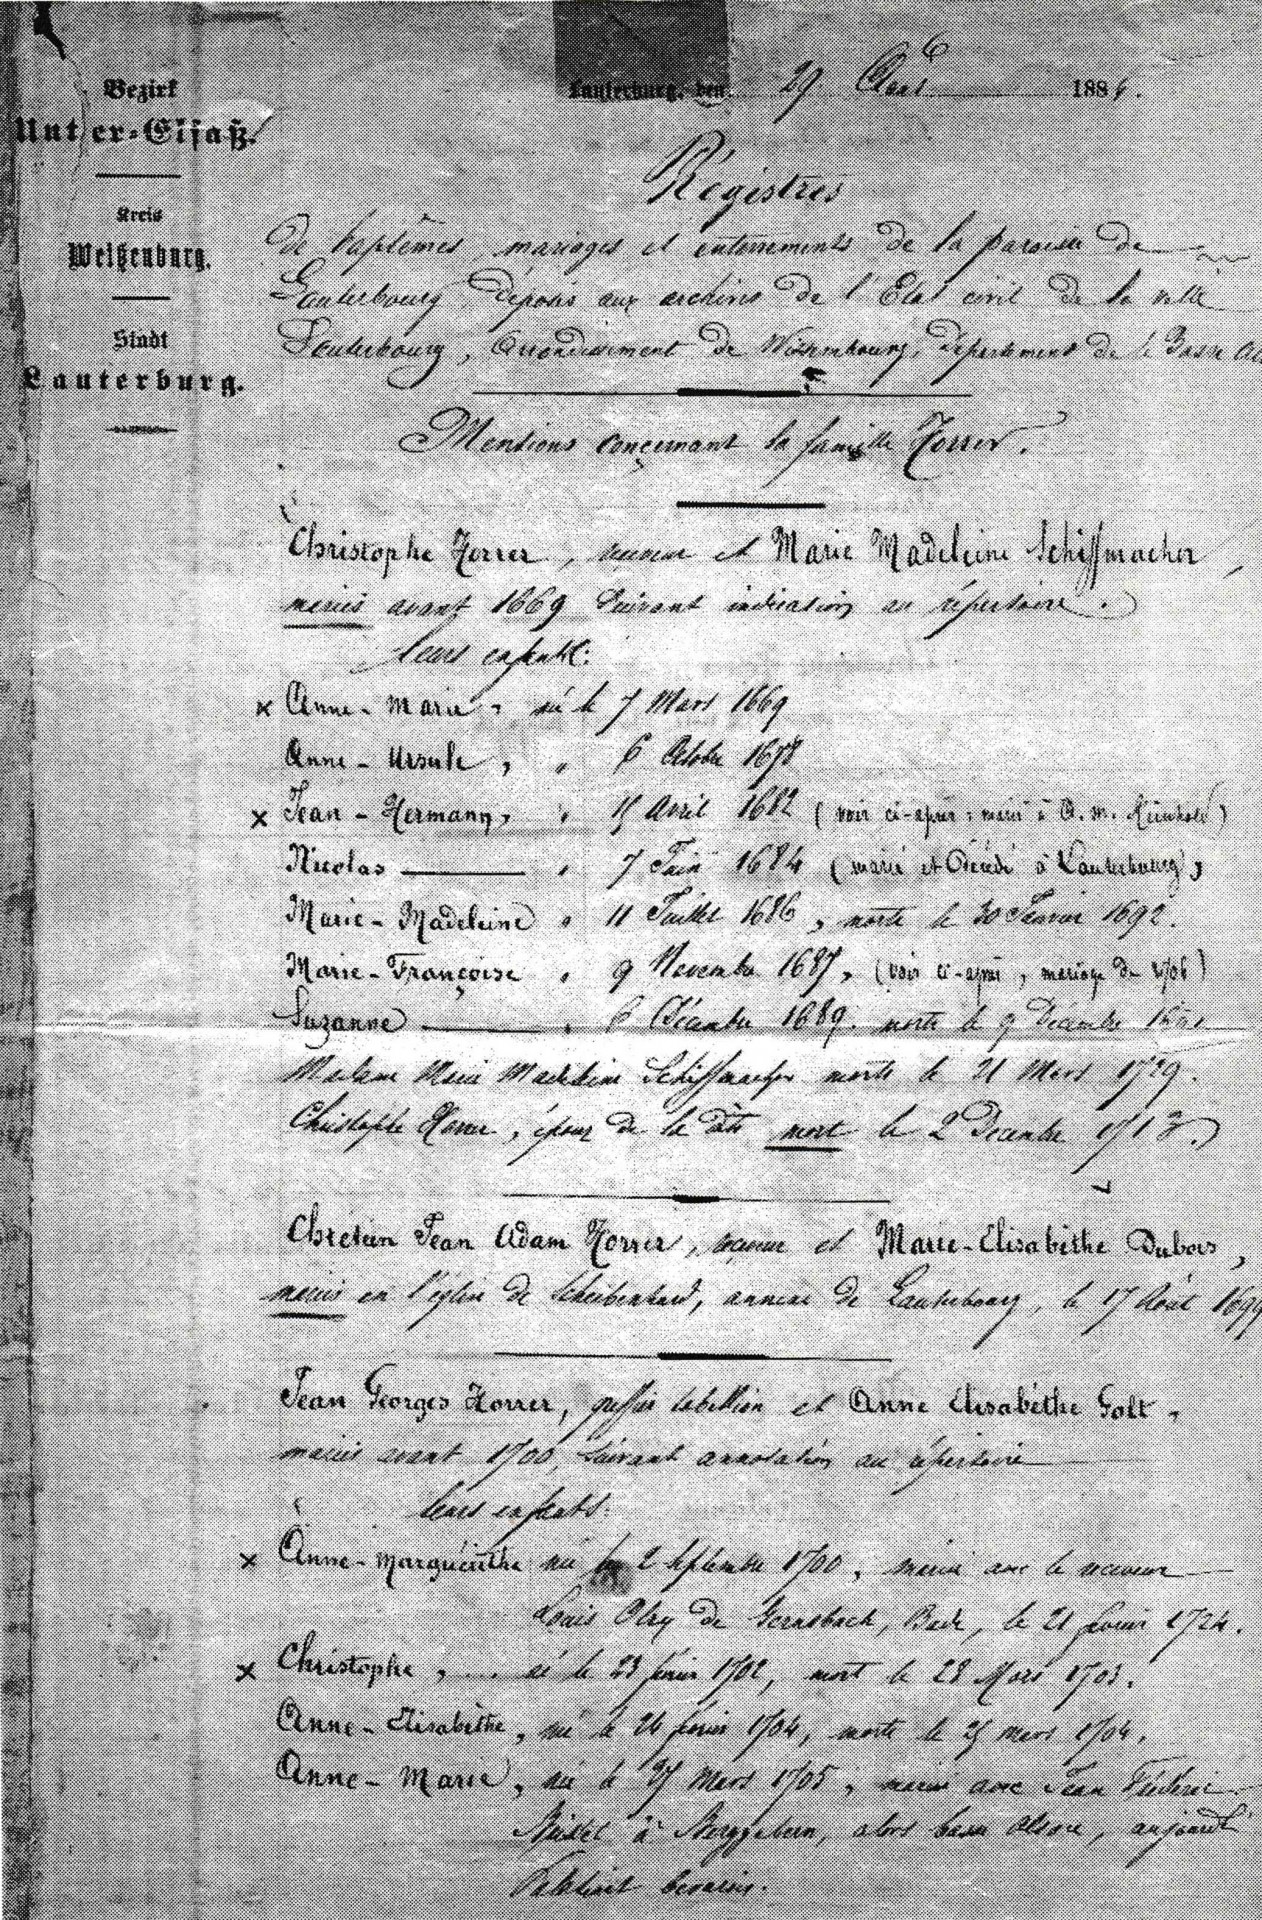 Bezirk
Unter-Elsaß.
Kreis
Weißenburg.
Stadt
Lauterburg.
Lauterburg, den 29. 1886.
Régistres
de baptêmes, mariages et enterrements de la paroisse de
Lauterbourg, déposés aux archives de l'Etat civil de la ville
Lauterbourg, Arrondissement de Wissembourg, département de la Basse
Mentions conçernant la famille Horrer.
Christophe Horrer, receveur et Marie Madeleine Schiffmacher,
mariés avant 1669 suivant indication au répertoire.
leurs enfants:
x Anne-Marie, née le 7 Mars 1669
Anne-Ursule, " 6 Octobre 1678
x Jean-Hermann, " 15 Avril 1682 (voir ci-après: marié à A. M.
Nicolas " 7 Juin 1684 (marié et décédé à Lauterbourg),
Marie-Madeleine " 11 Juillet 1686, morte le 30 Janvier 1692.
Marie-Françoise " 9 Novembre 1687, (voir ci-après, mariage de 1706)
Suzanne " 6 Décembre 1689. morte le 9 Décembre
Madame Marie Madeleine Schiffmacher morte le 21 Mars 1729.
Christophe Horrer, époux de la dite mort le 2 Décembre
Chretien Jean Adam Horrer, receveur et Marie-Elisabéthe Dubois,
mariés en l'église de Scheibenhard, annexe de Lauterbourg, le 17 Août 1699
Jean Georges Horrer, greffier tabellion et Anne Elisabéthe Folt,
mariés avant 1700, suivant annotation au répertoire
leurs enfants:
x Anne-Marguérithe née le 2 Septembre 1700, mariée avec le receveur
Louis Olry de Gernsbach, Bade, le 21 février 1724.
x Christophe, né le 23 février 1702, mort le 28 Mars 1703.
Anne-Elisabèthe, née le 24 février 1704, morte le 25 mars 1704.
Anne-Marie, née le 27 Mars 1705, mariée avec Jean
à Bergzabern, alors basse Alsace, aujourd'
Palatinat bavarois.